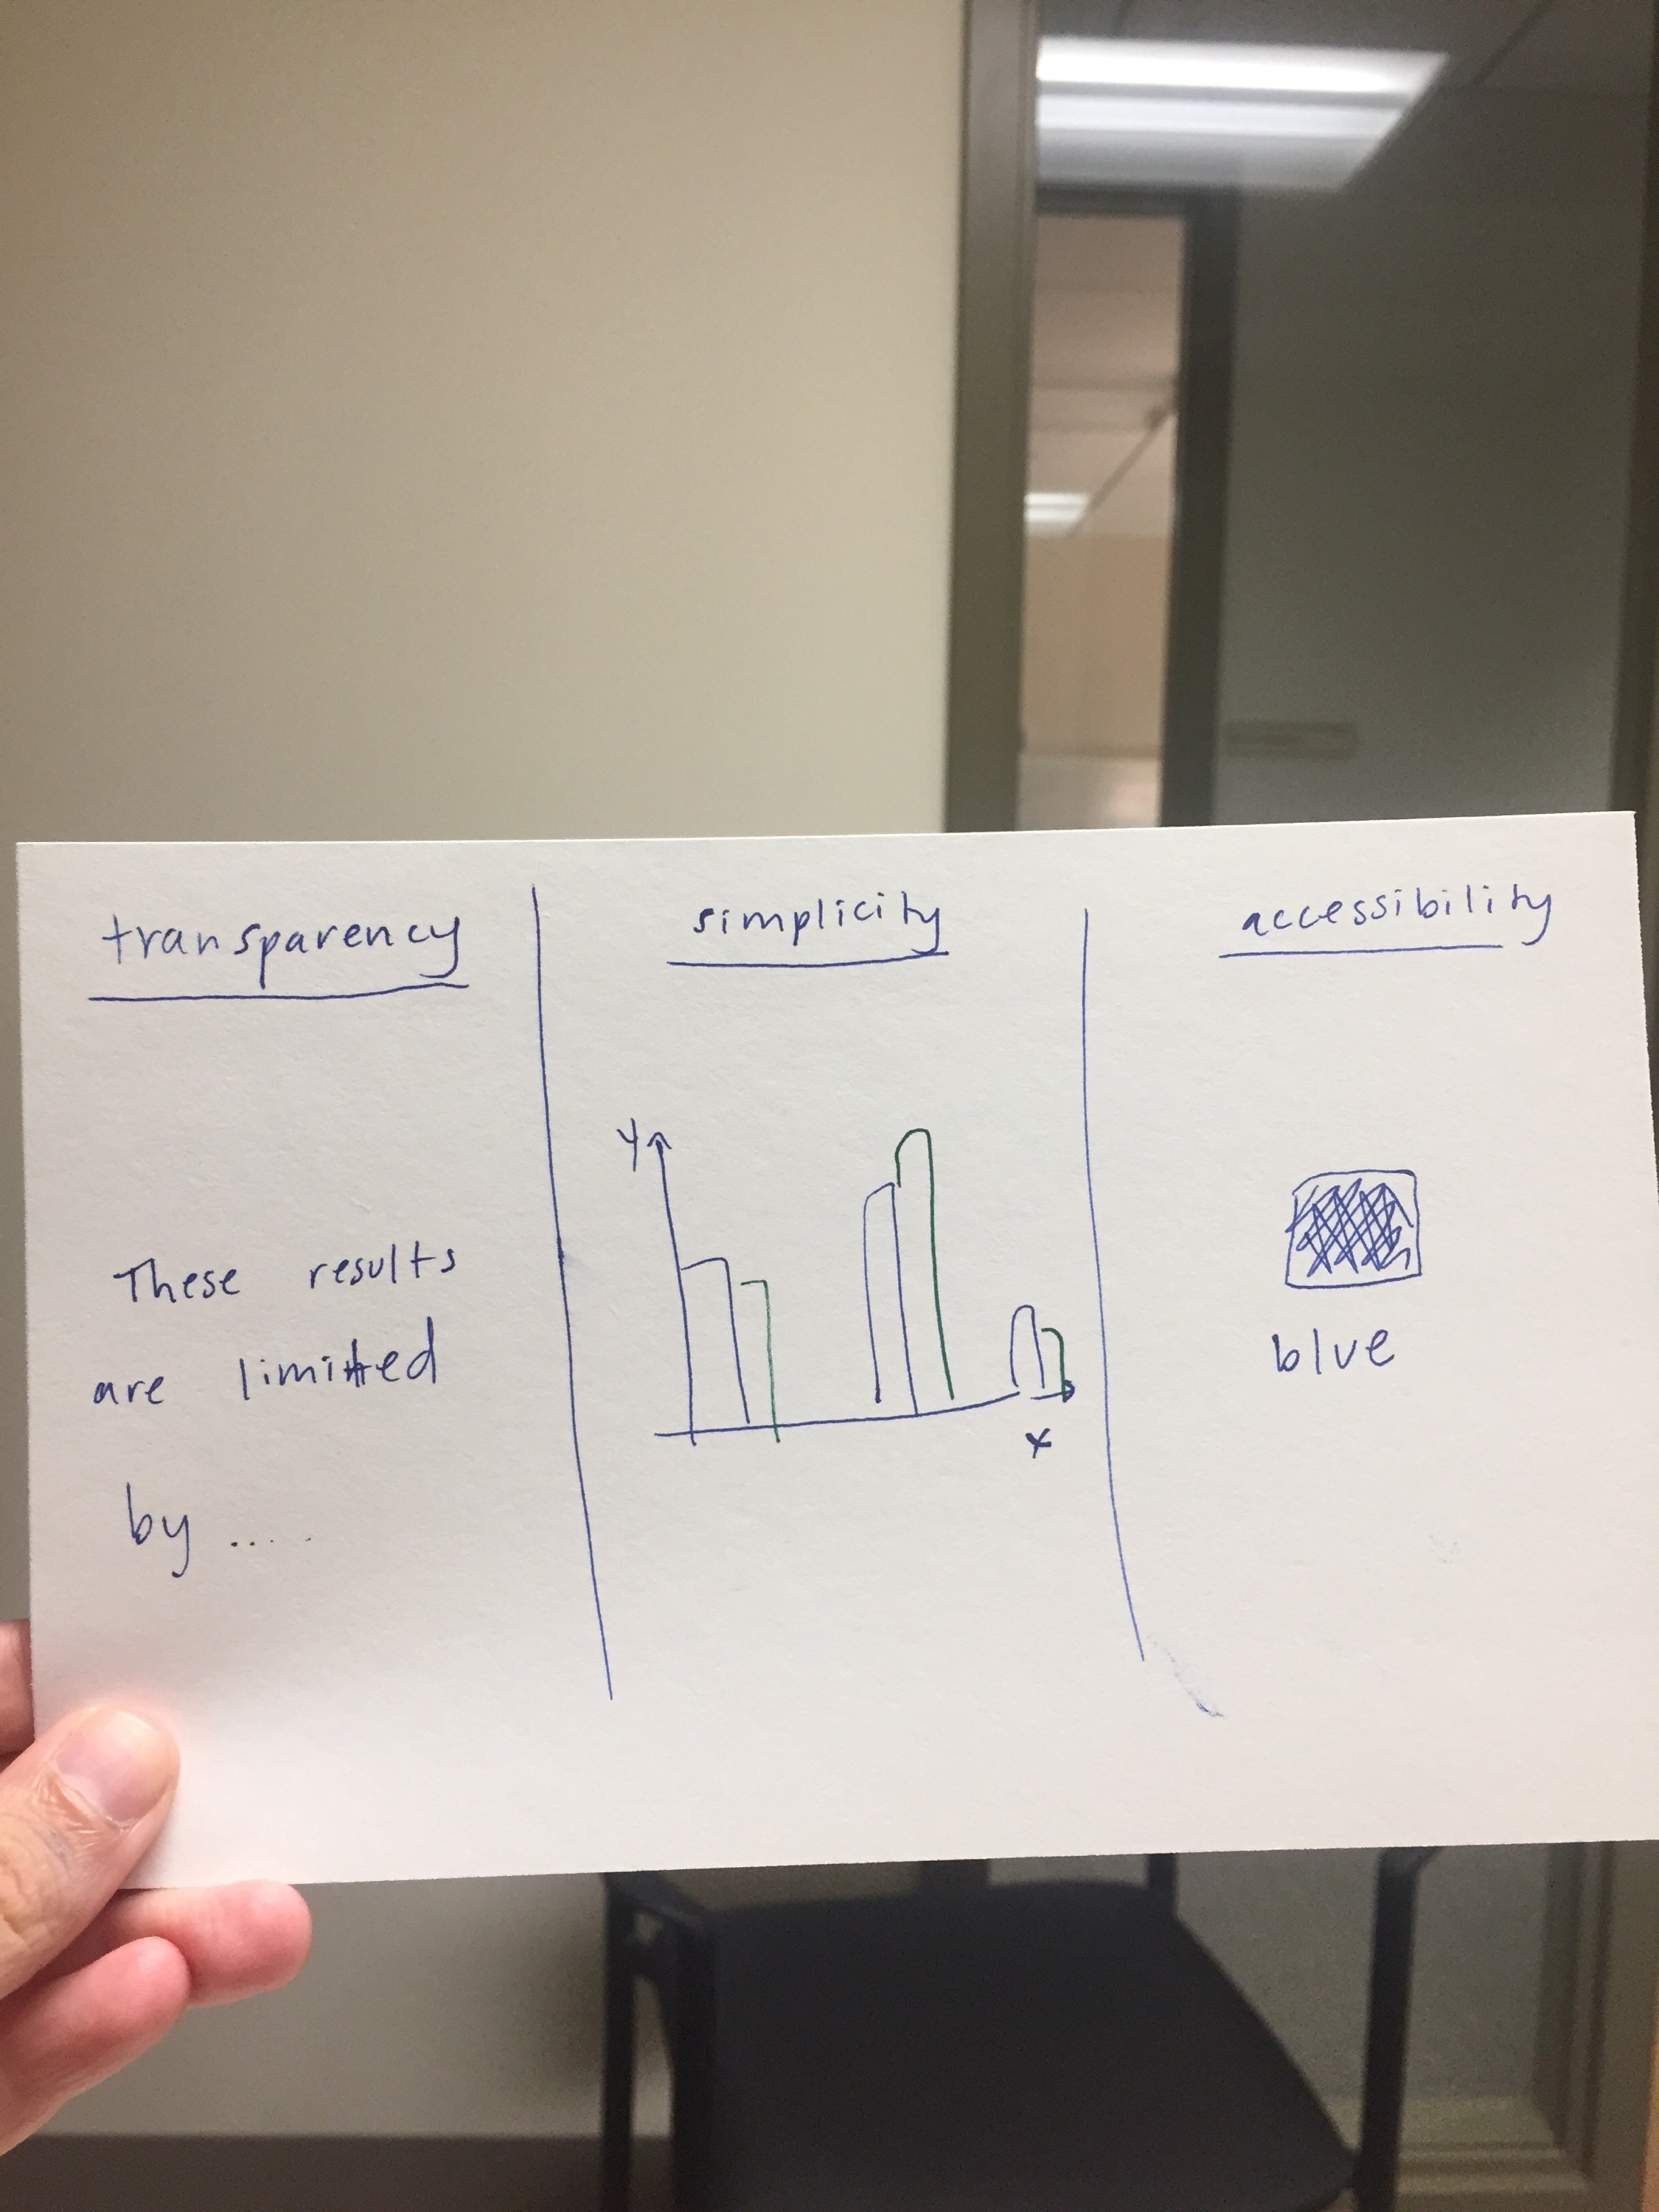 transparency
These results
are limited
by .....
simplicity
y
x
accessibility
blue